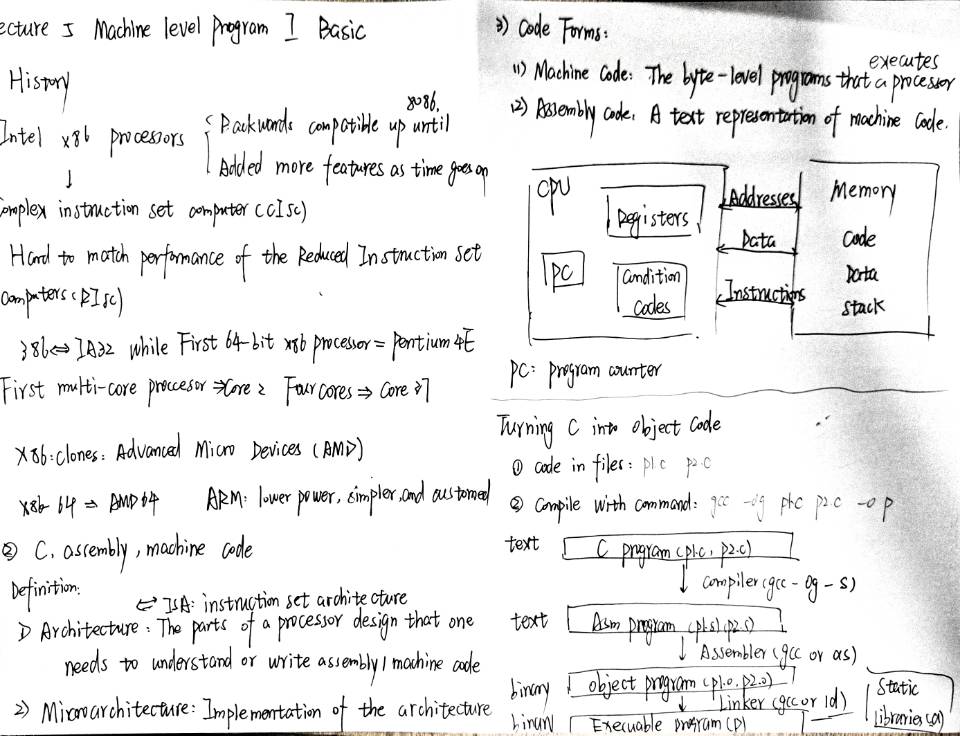 ecture 5 Machine level Program I Basic
History
Intel x86 processors
Backwords compatible up until 8086.
Added more features as time goes on
omplex instruction set computer (CISC)
Hard to match performance of the Reduced Instruction set
computers (RISC)
386 ⇔ IA32 while First 64-bit x86 processor = Pentium 4E
First multi-core proccesor ⇒ Core 2 Four cores ⇒ Core i7
X86: clones: Advanced Micro Devices (AMD)
x86-64 ⇒ AMD 64 ARM: lower power, simpler, and customed
② C, assembly, machine code
Definition:
⇔ ISA: instruction set architecture
1) Architecture: The parts of a processor design that one
needs to understand or write assembly / machine code
2) Microarchitecture: Implementation of the architecture
3) Code Forms:
(1) Machine Code: The byte-level programs that a processor executes
(2) Assembly code: A text representation of machine code.
CPU
Registers
PC
Condition
Codes
Addresses
Data
Instructions
Memory
Code
Data
Stack
PC: program counter
Turning C into object Code
① code in files: p1.c p2.c
② Compile with command: gcc -og p1.c p2.c -o p
text C program (p1.c, p2.c)
↓ Compiler (gcc - og - s)
text Asm program (p1.s) (p2.s)
↓ Assembler (gcc or as)
binary object program (p1.o, p2.o)
↓ Linker (gcc or ld)
binary Execuable program (p)
Static
Libraries (a)